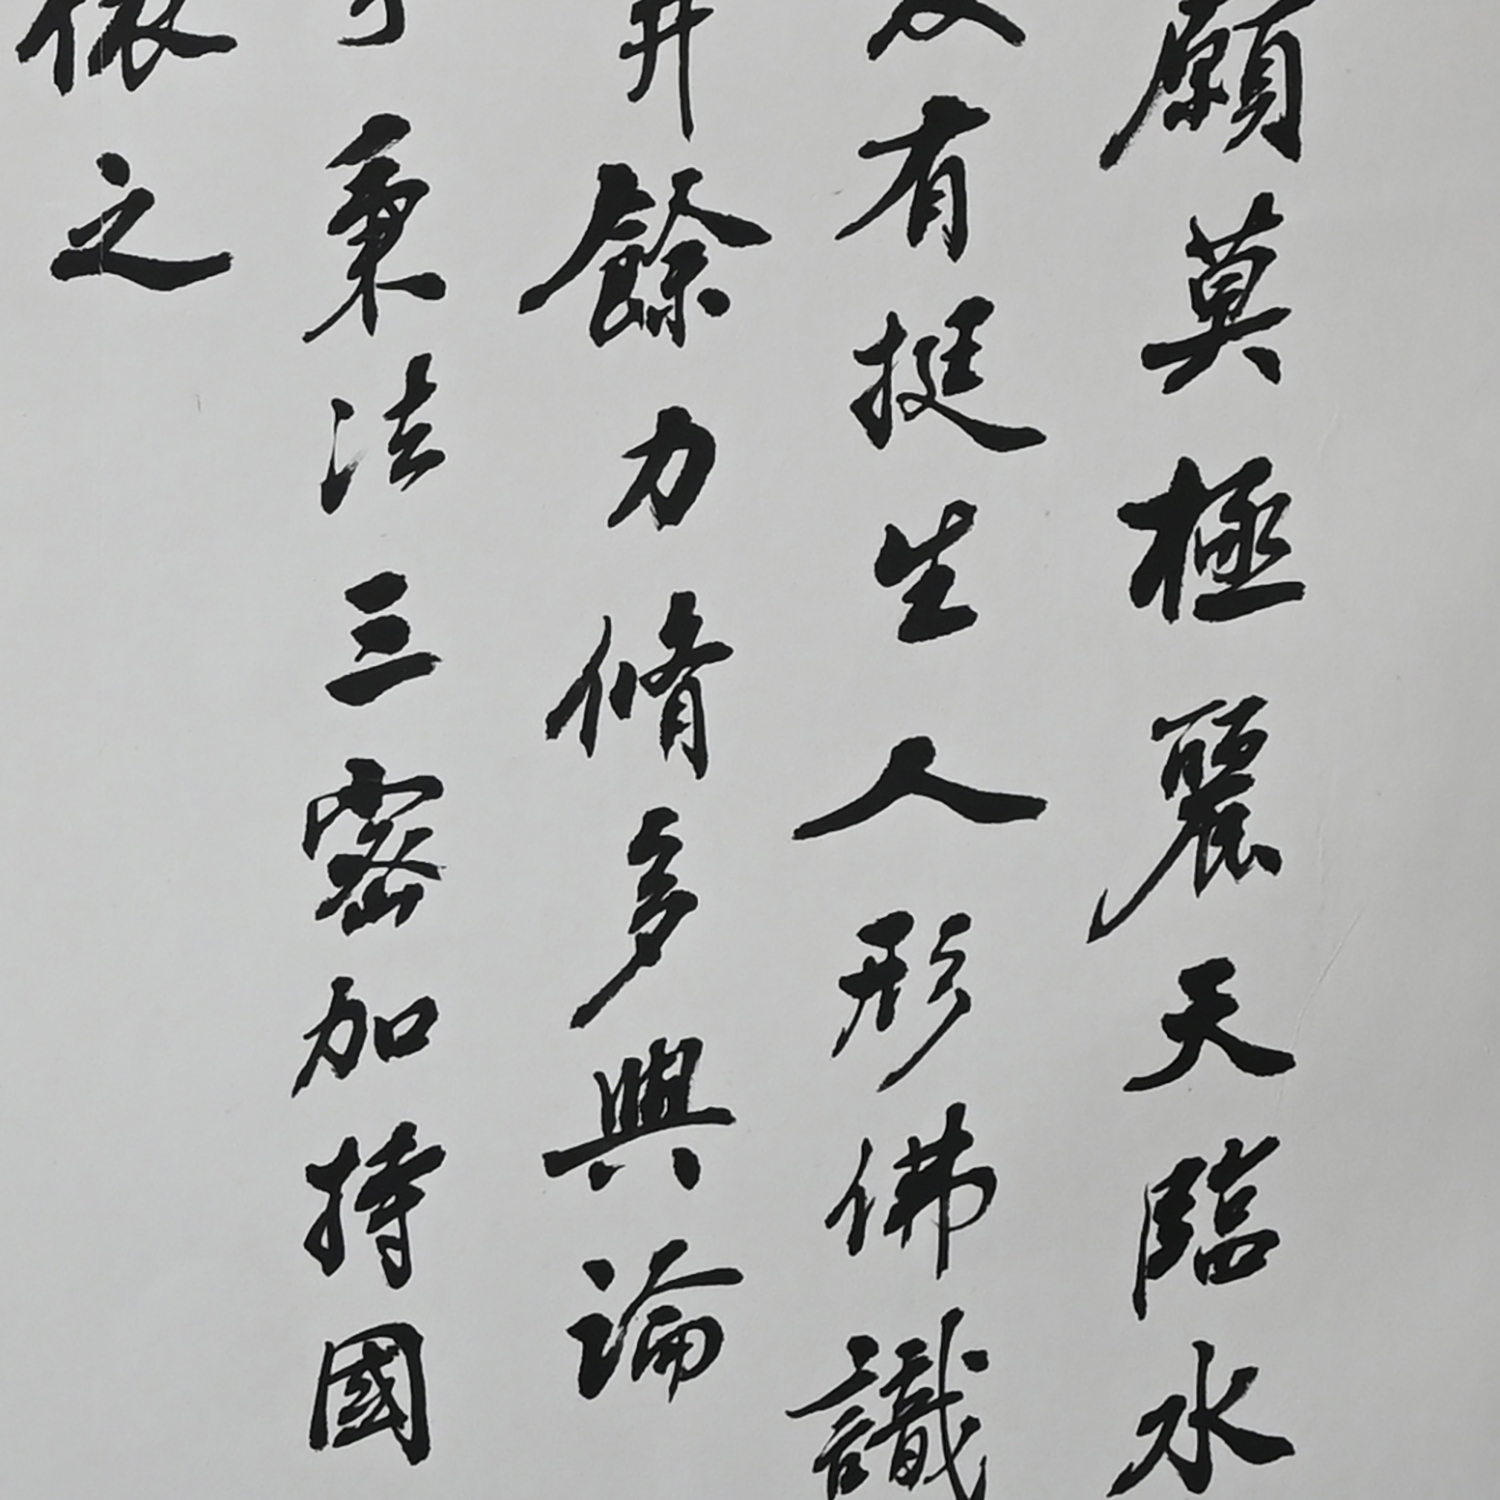 願莫極麗天臨水
有挺生人形佛識
餘力脩多與論
秉法三密加持國
之